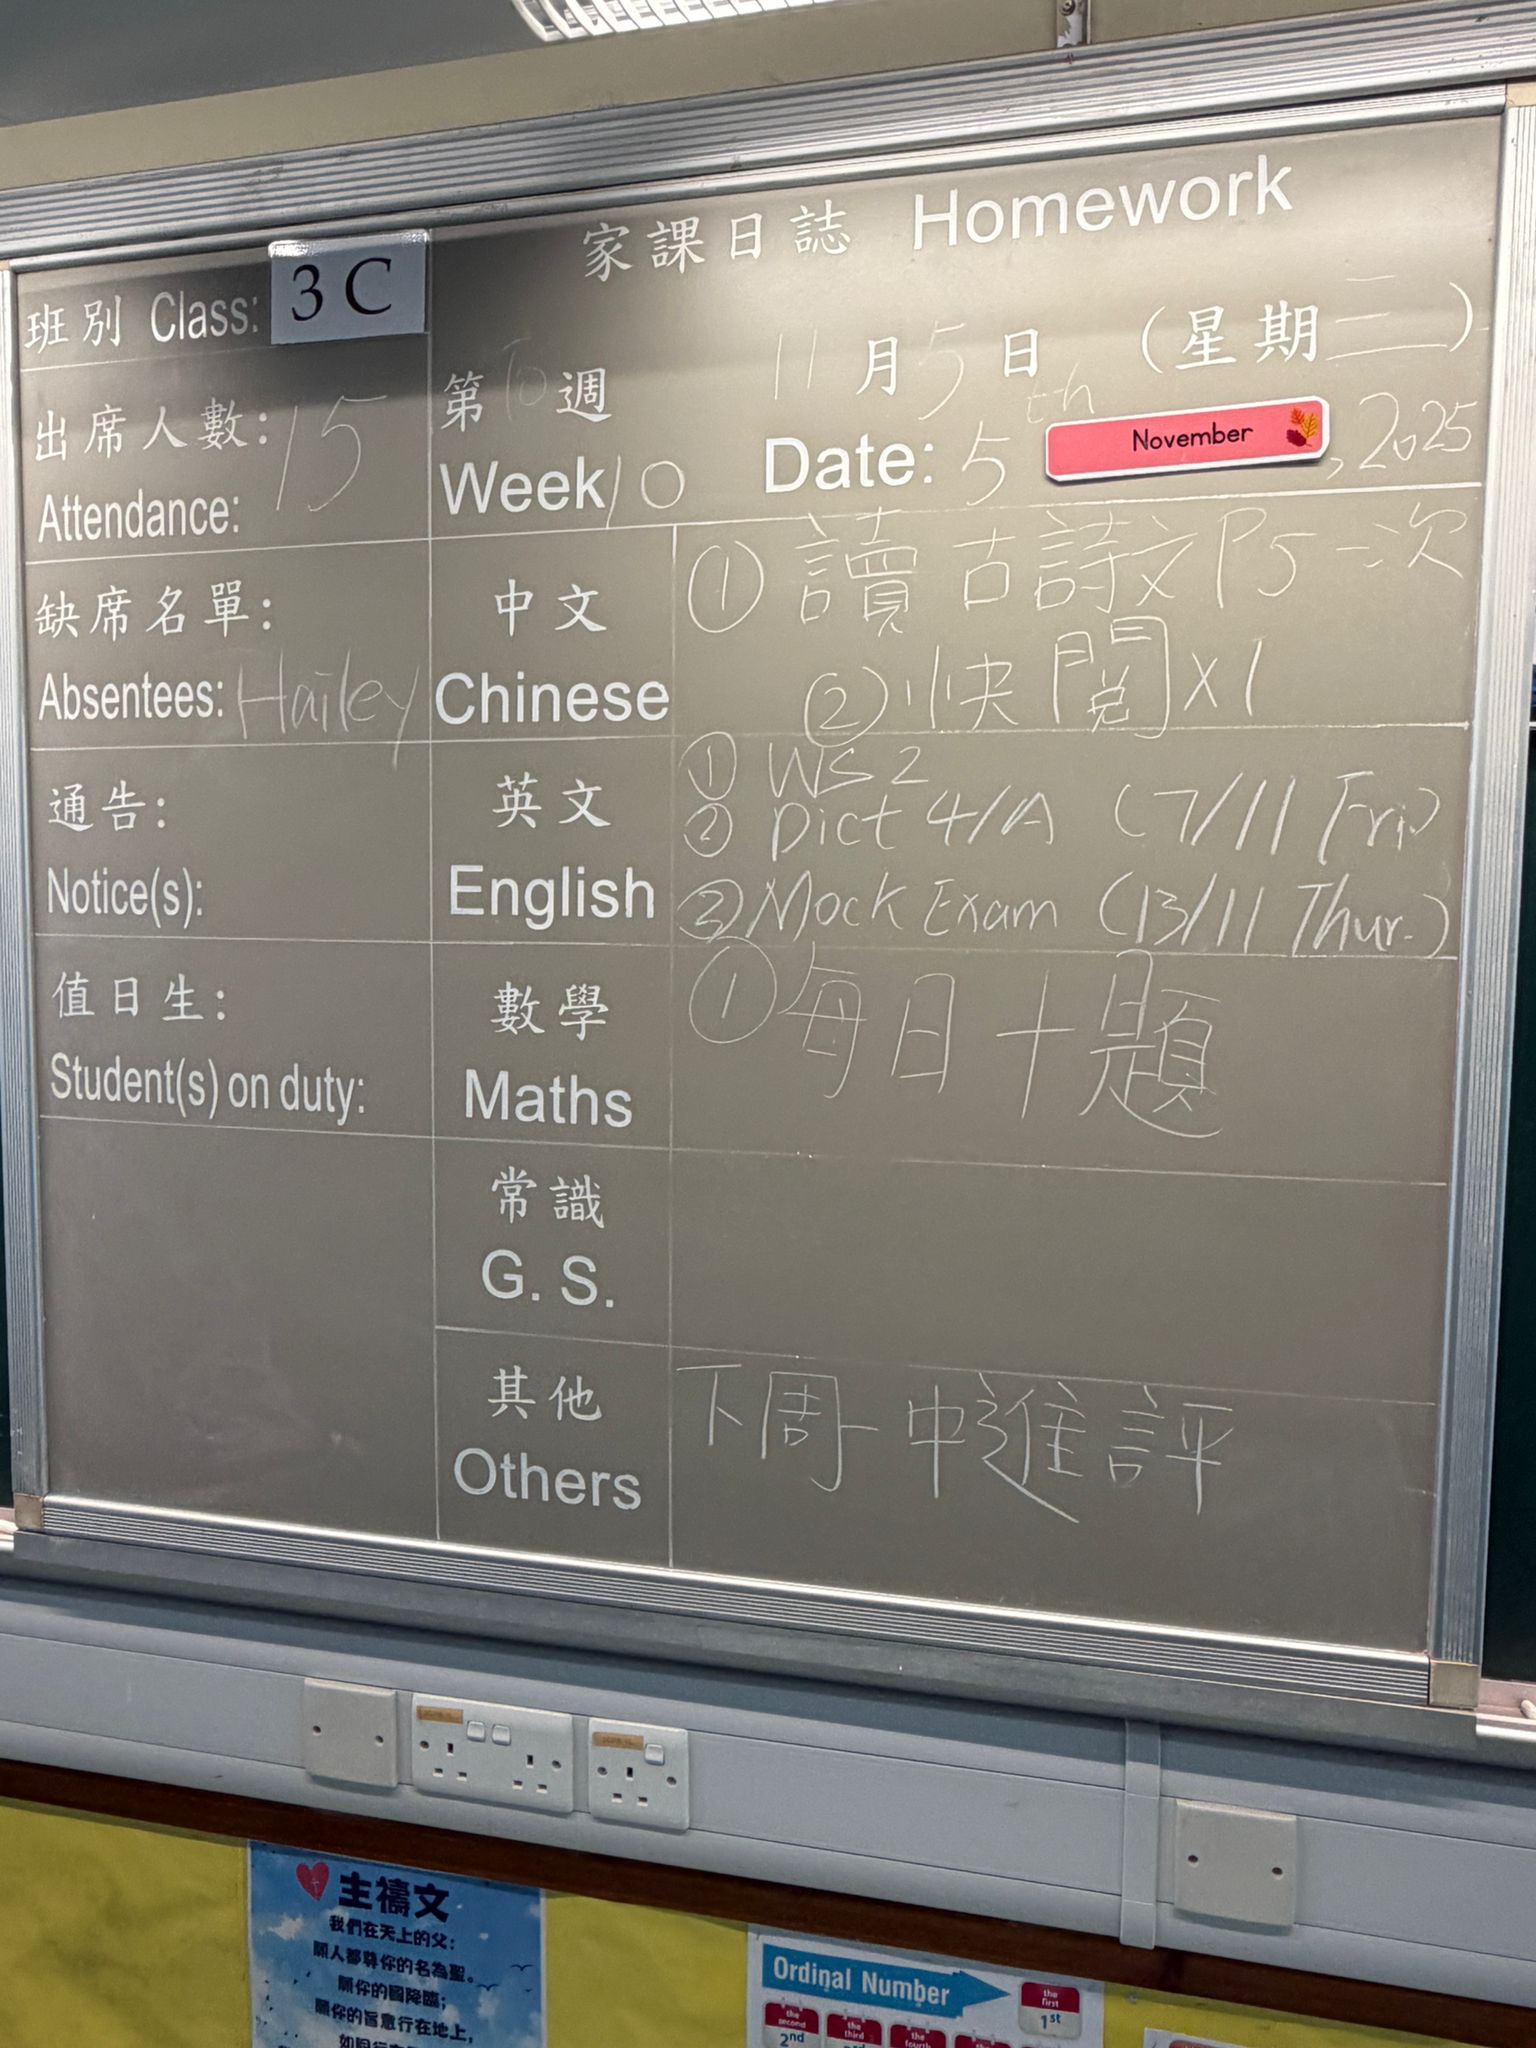 家課日誌 Homework
班別 Class: 3C
出席人數: 15
Attendance:
缺席名單:
Absentees: Hailey
通告:
Notice(s):
值日生:
Student(s) on duty:
第 10 週
Week 10
11 月 5 日 (星期三)
Date: 5th November, 2025
中文
Chinese
① 讀古詩文P5一次
② 快閱x1
英文
English
① WS 2
② Dict 4/A (7/11 Fri)
③ Mock Exam (13/11 Thur.)
數學
Maths
① 每日十題
常識
G. S.
其他
Others
下周一中進評
主禱文
我們在天上的父:
願人都尊你的名為聖。
願你的國降臨;
願你的旨意行在地上,
Ordinal Number
the first
1st
the second
2nd
the third
the fourth